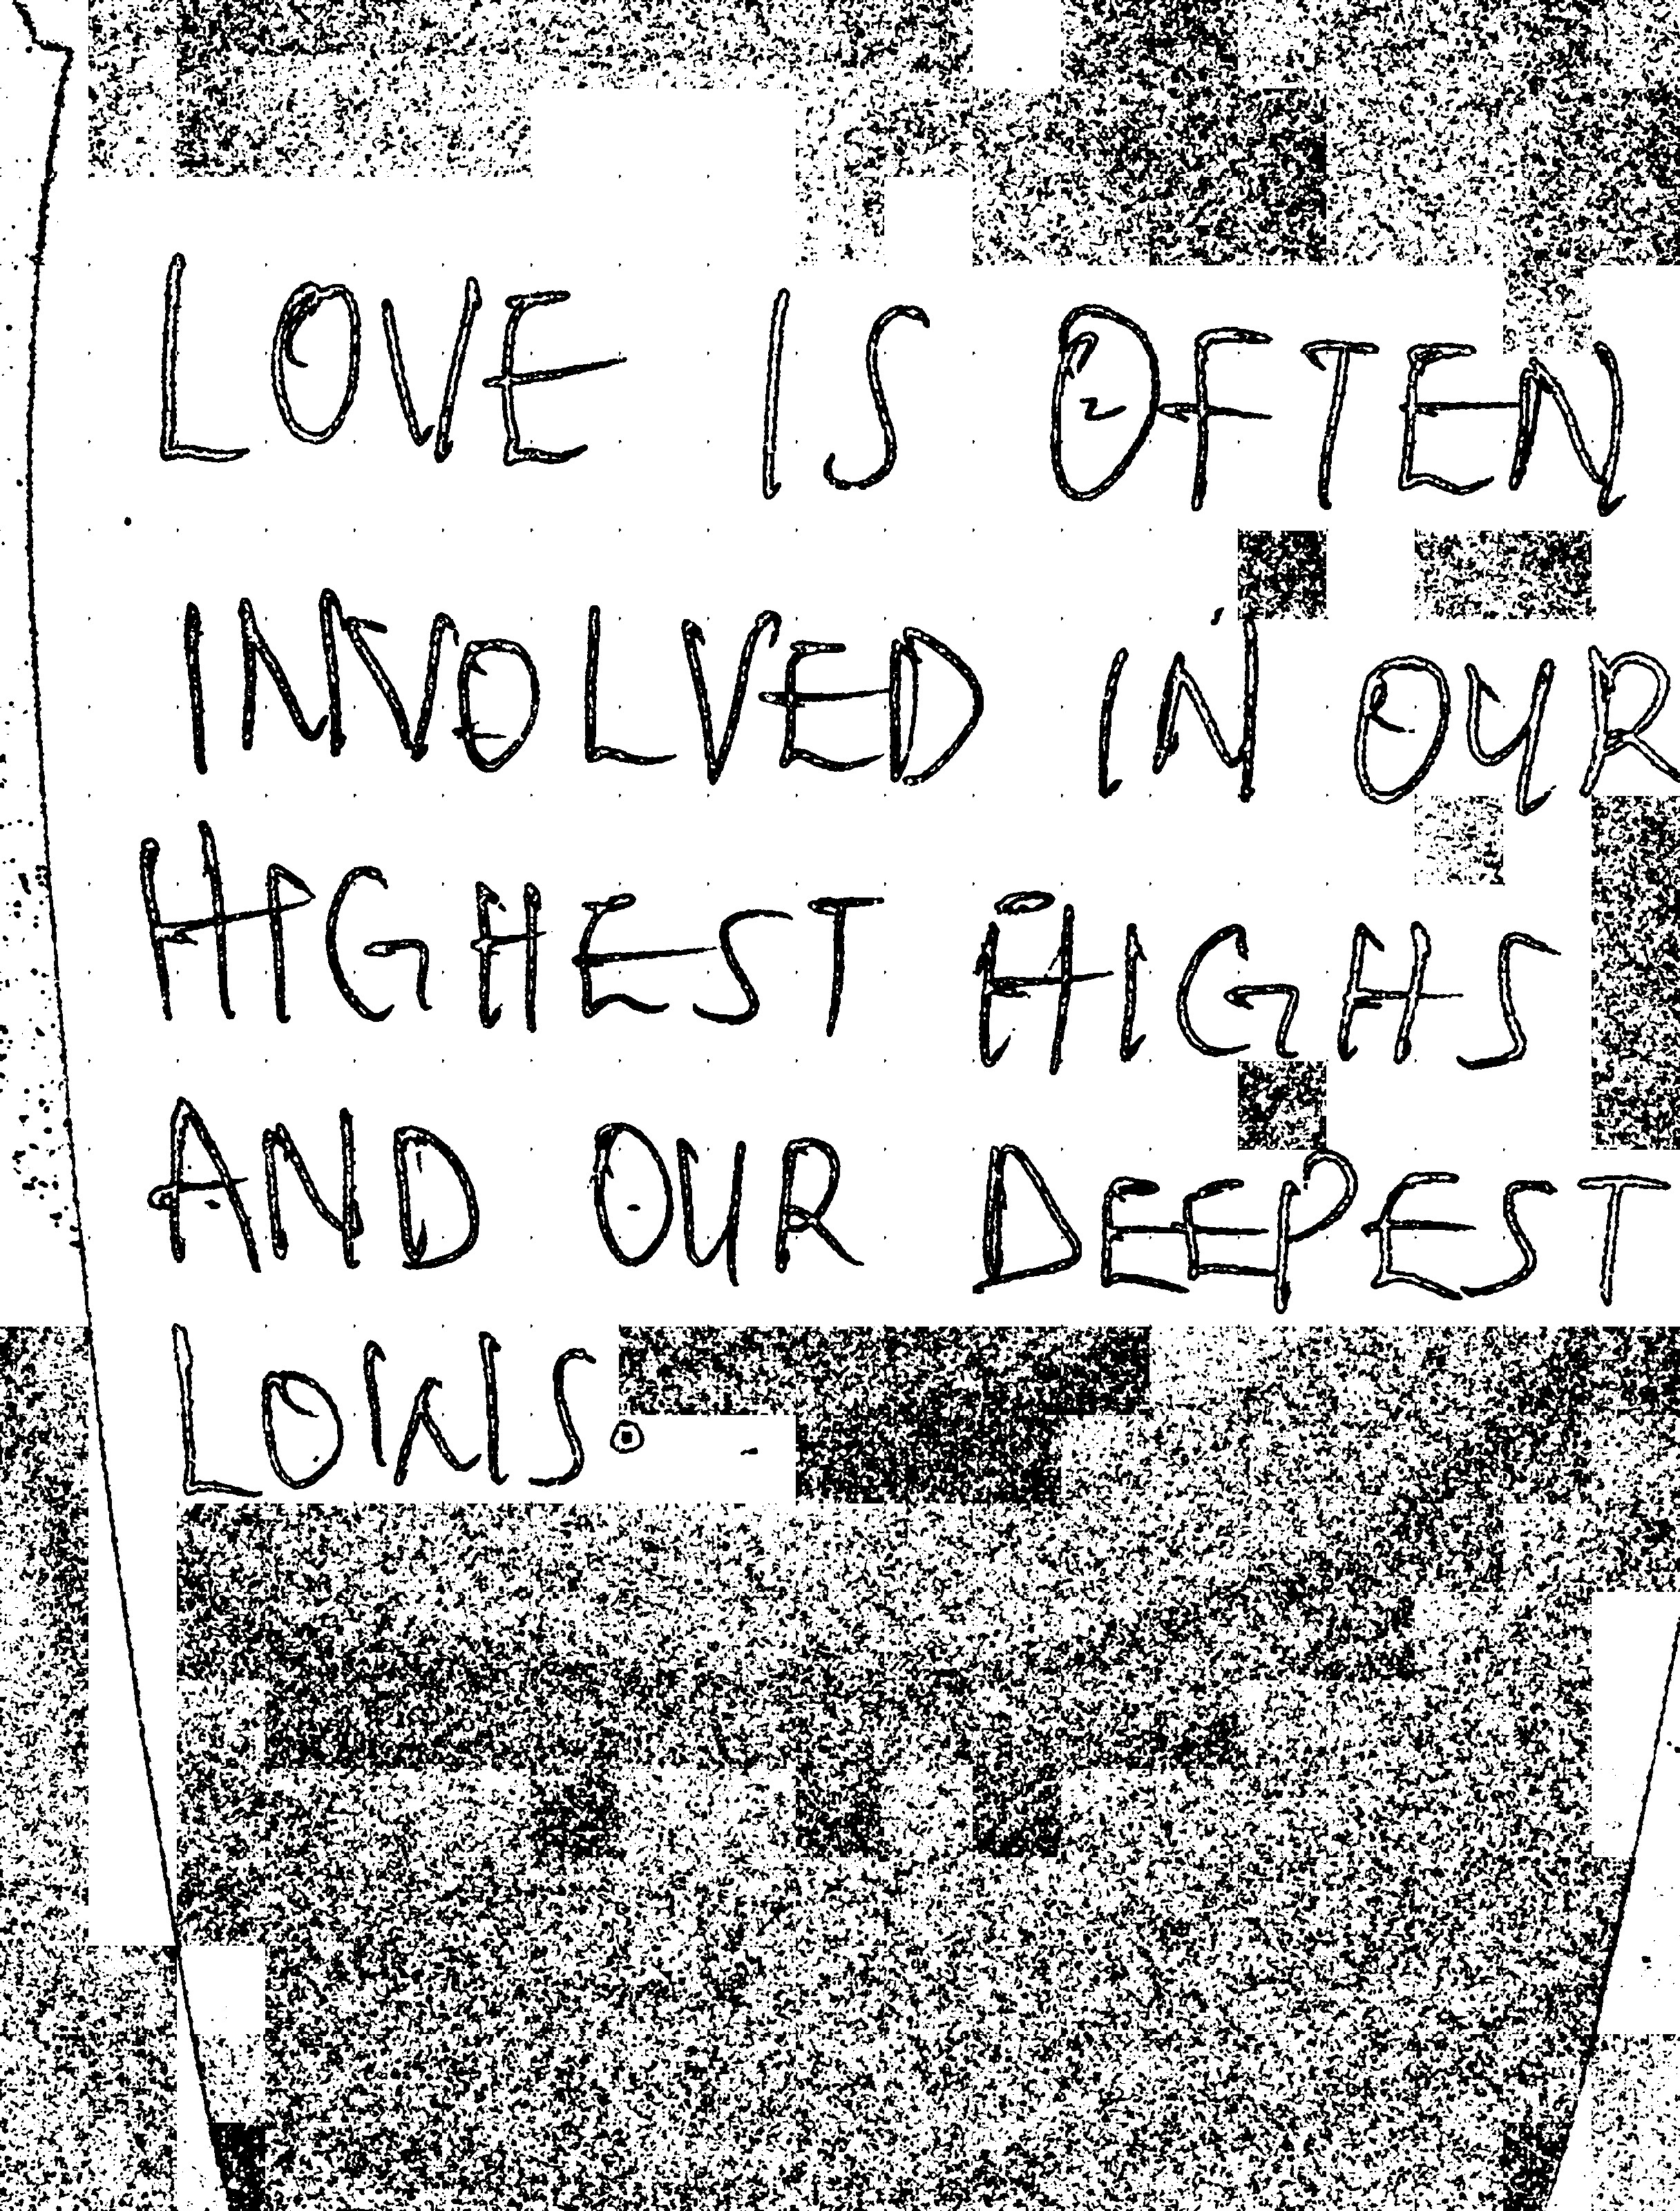 LOVE IS OFTEN
INVOLVED IN OUR
HIGHEST HIGHS
AND OUR DEEPEST
LOWS.